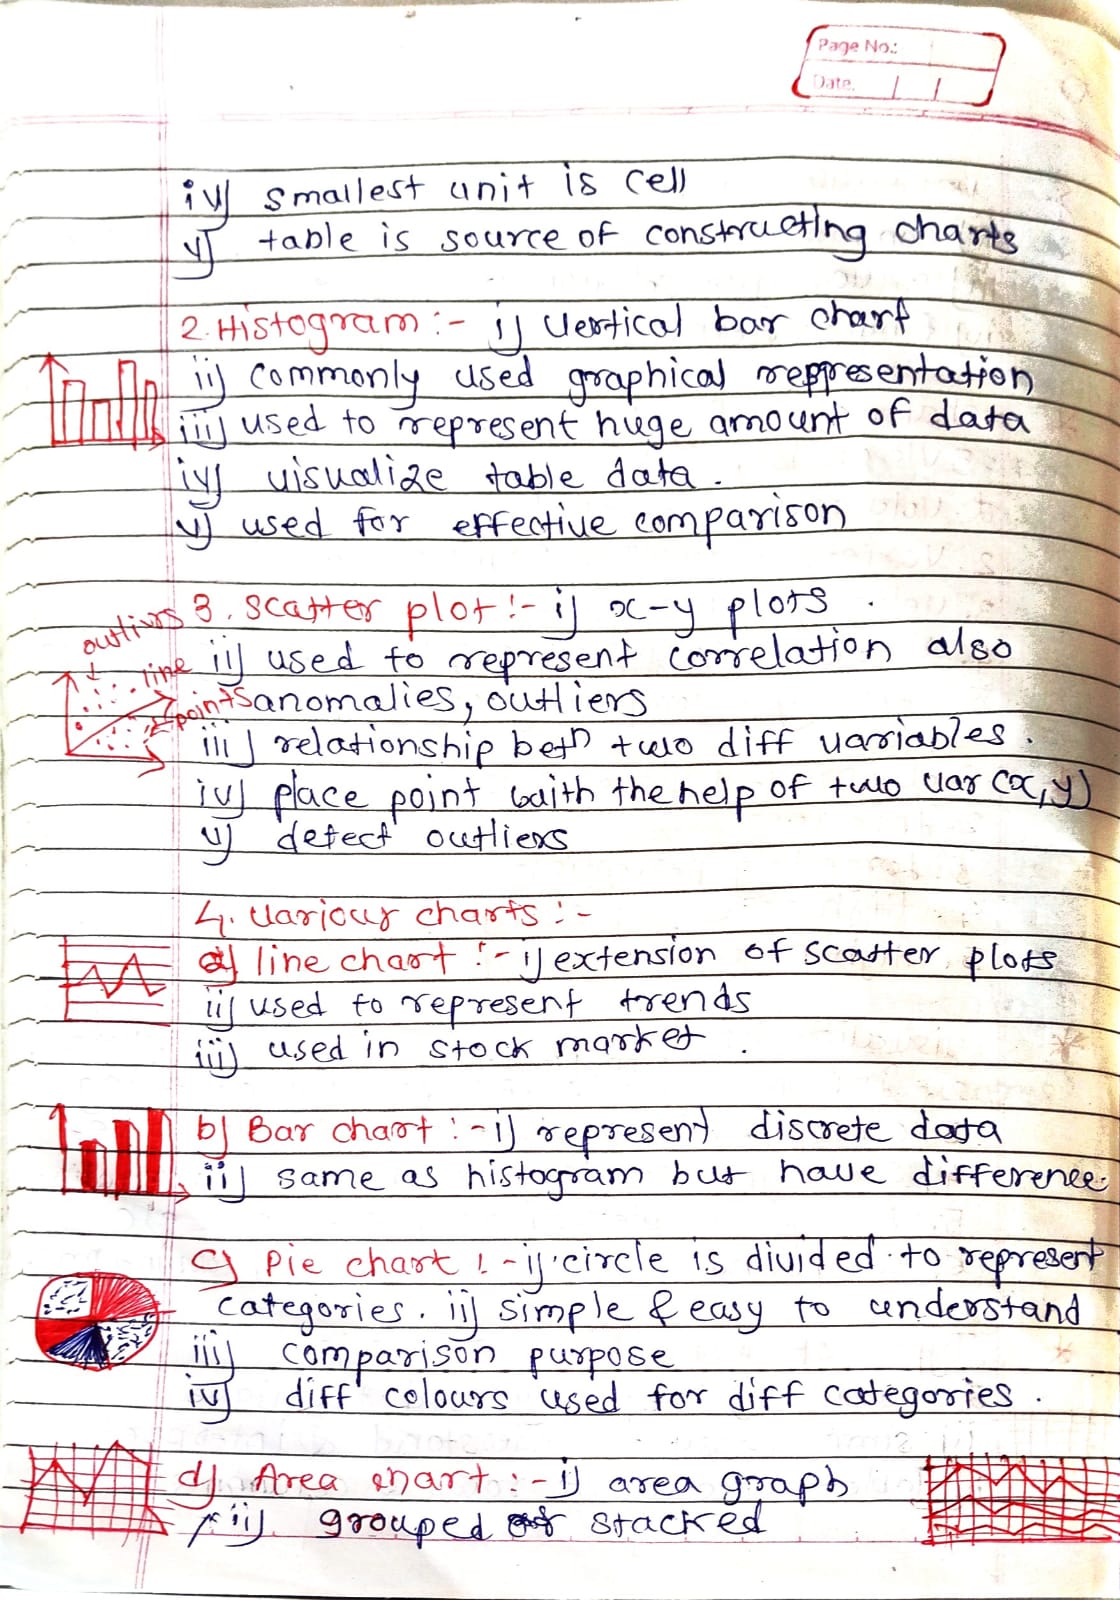 Page No.:
Date.
iv) smallest unit is cell
v) table is source of constructing charts
2. Histogram :- i) Vertical bar chart
ii) commonly used graphical reppresentation
iii) used to represent huge amount of data
iv) visualize table data.
v) used for effective comparison
3. Scatter plot :- i) x-y plots.
outliers
ii) used to represent correlation also
line
anomalies, outliers
points
iii) relationship betn two diff variables.
iv) place point waith the help of two var (x,y)
v) detect outliers
4. Various charts :-
a) line chart :- i) extension of scatter plots
ii) used to represent trends
iii) used in stock market.
b) Bar chart :- i) represent discrete data
ii) same as histogram but have difference.
c) Pie chart :- i) circle is divided to represent
categories. ii) simple & easy to understand
iii) comparison purpose
iv) diff colours used for diff categories.
d) Area chart :- i) area graph
ii) grouped stacked